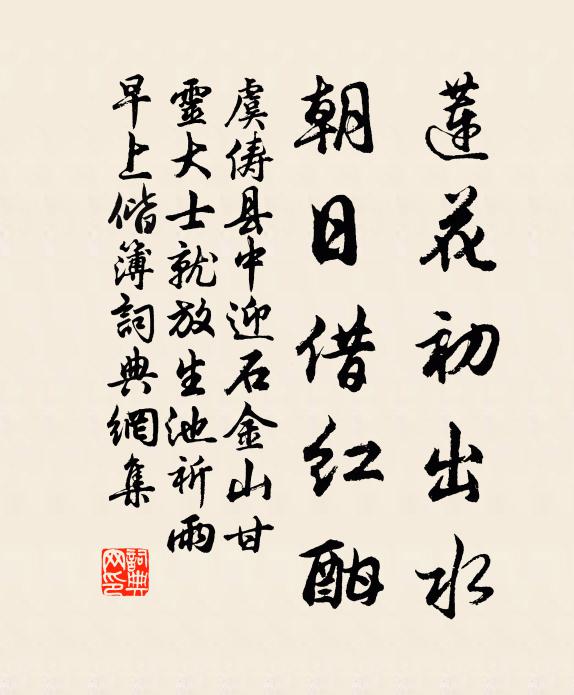 蓮花初出水
朝日借红酣
虞俦县中迎石金山甘
靈大士就放生池祈雨
早上偕簿詞典網集
詞典網印